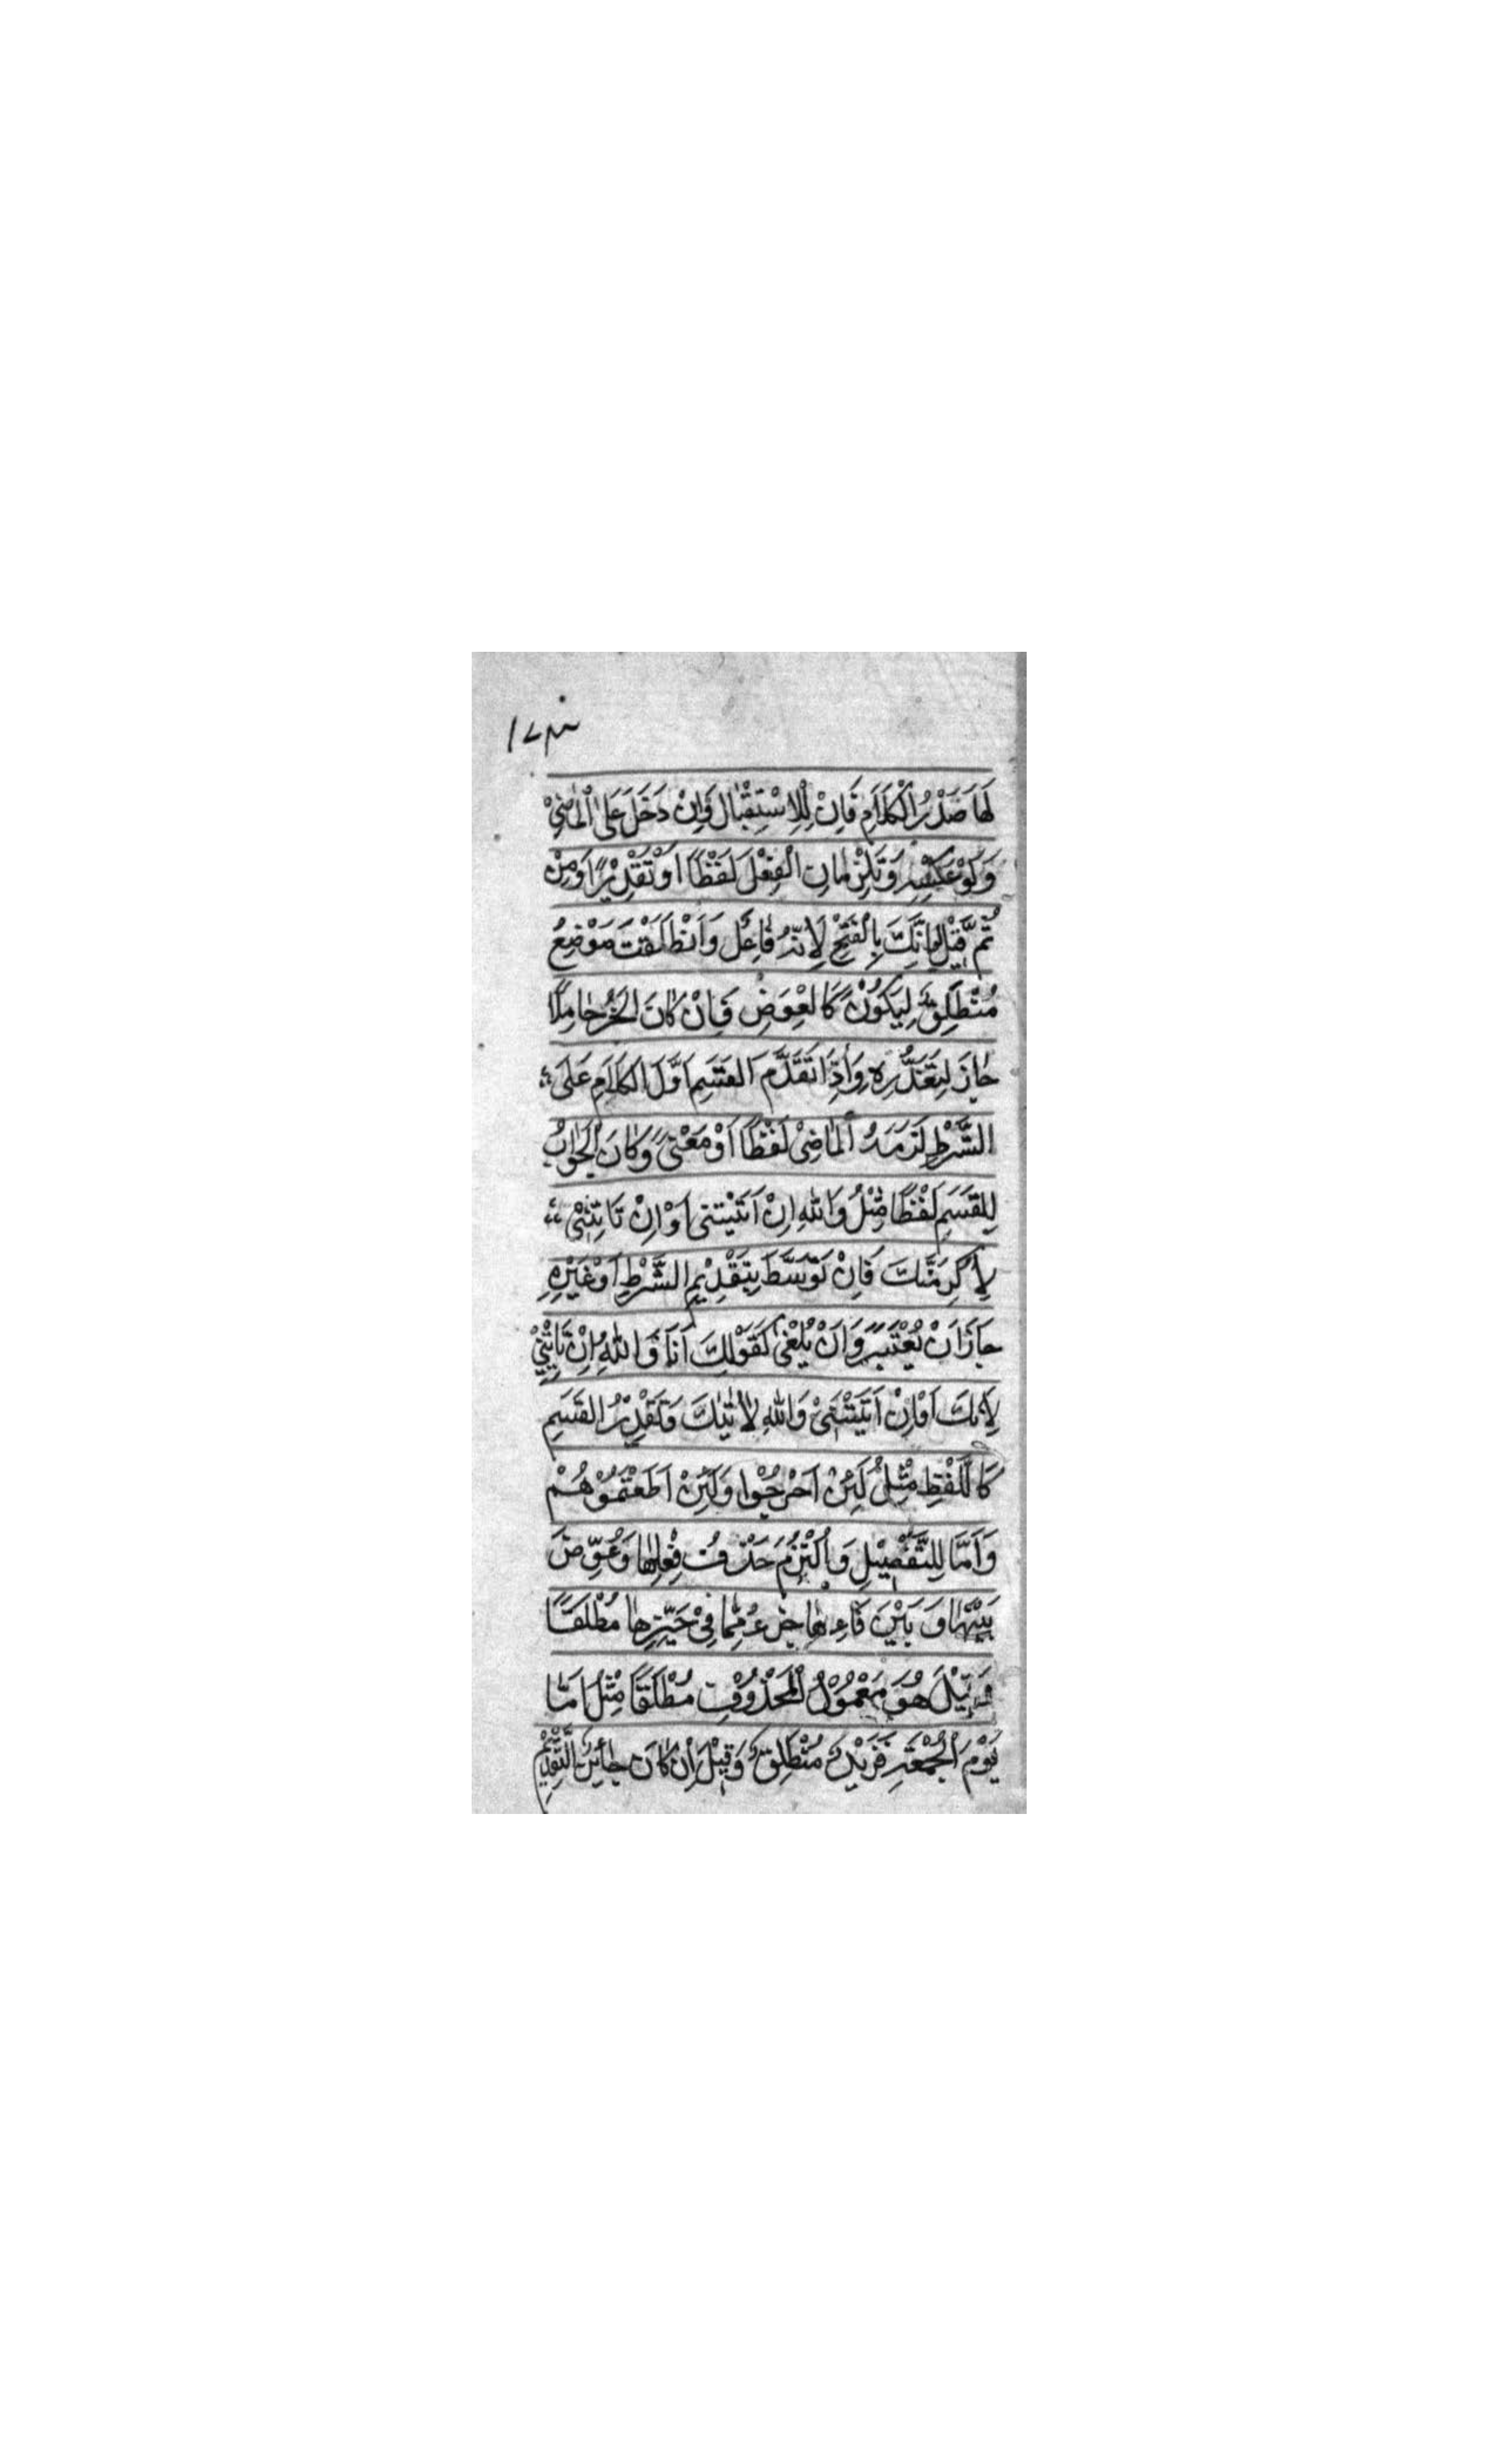 لَهَا صَدْرُ الْكَلَامِ فَاِنْ لِلْاِسْتِقْبَالِ وَاِنْ دَخَلَ عَلَى الْمَاضِيْ
وَلَوْ عَكْسِهِ وَتَلْزَمَانِ الْفِعْلَ لَفْظًا اَوْ تَقْدِيْرًا وَمِنْ
ثُمَّ قِيْلَ لَوْ اَنَّكَ بِالْفَتْحِ لِاَنَّهُ فَاعِلٌ وَانْطَلَقْتَ مَوْضِعُ
مُنْطَلِقٍ لِيَكُوْنَ كَالْعِوَضِ فَاِنْ كَانَ الْخَبَرُ جَامِدًا
جَازَ لِتَعَذُّرِهِ وَاِذَا تَقَدَّمَ الْقَسَمِ اَوَّلَ الْكَلَامِ عَلَى
الشَّرْطِ لَزِمَهُ الْمَاضِيْ لَفْظًا اَوْ مَعْنًى وَكَانَ الْجَوَابُ
لِلْقَسَمِ لَفْظًا مِثْلُ وَاللهِ اِنْ اَتَيْتَنِى اَوْ اِنْ تَاتِنِيْ
لَاُكْرِمَنَّكَ فَاِنْ تَوَسَّطَ بِتَقْدِيْمِ الشَّرْطِ اَوْ غَيْرِهِ
جَازَ اَنْ يُعْتَبَرَ وَاَنْ يُلْغٰى كَقَوْلِكَ اَنَا وَاللهِ اِنْ تَاتِنِيْ
لَاٰتِكَ اَوْ اِنْ اَتَيْتَنِيْ وَاللهِ لَاٰتِيَنَّكَ وَتَقْدِيْرُ الْقَسَمِ
كَاللَّفْظِ مِثْلُ لَئِنْ اُخْرِجُوْا وَلَئِنْ اَطَعْتُمُوْهُمْ
وَاَمَّا لِلتَّفْصِيْلِ وَالْتُزِمَ حَذْفُ فِعْلِهَا وَعُوِّضَ
بَيْنَهَا وَبَيْنَ فَاءِهَا جُزْءٌ مِمَّا فِيْ حَيِّزِهَا مُطْلَقًا
وَقِيْلَ هُوَ مَعْمُوْلُ الْمَحْذُوْفِ مُطْلَقًا مِثْلُ اَمَّا
يَوْمَ الْجُمْعَةِ فَزَيْدٌ مُنْطَلِقٌ وَقِيْلَ اِنْ كَانَ جَائِزَ التَّقْدِيْمِ